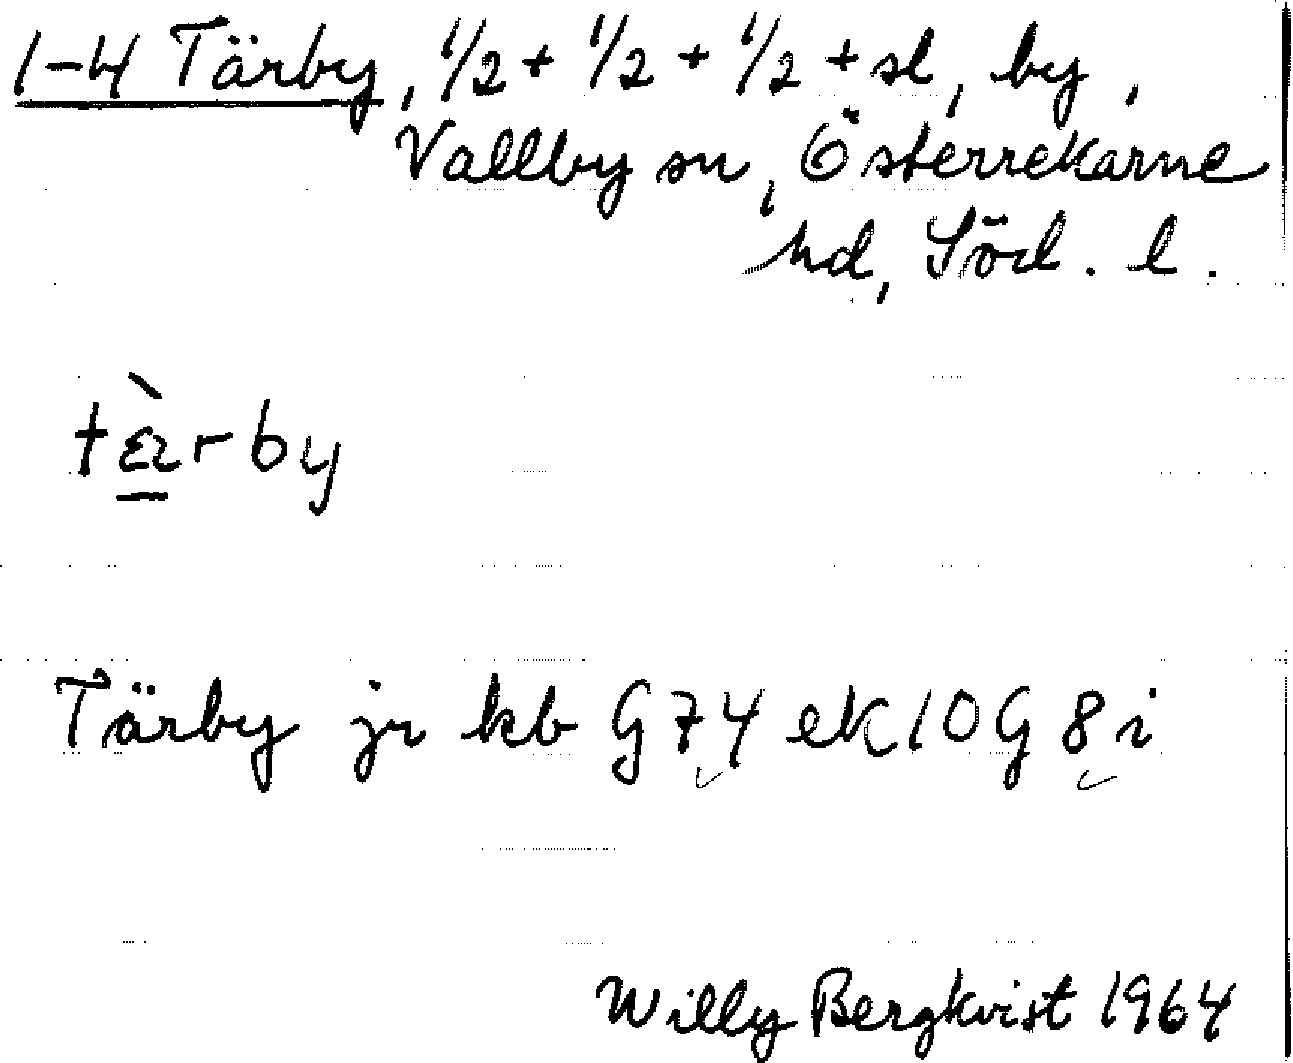 1-4 Tärby, 1/2 + 1/2 + 1/2 + sl, by,
Vallby sn, Österrekarne
hd, Söd. l.
tæ̀rby
Tärby jr kb G74 ek 10G 8i
Willy Bergkvist 1964